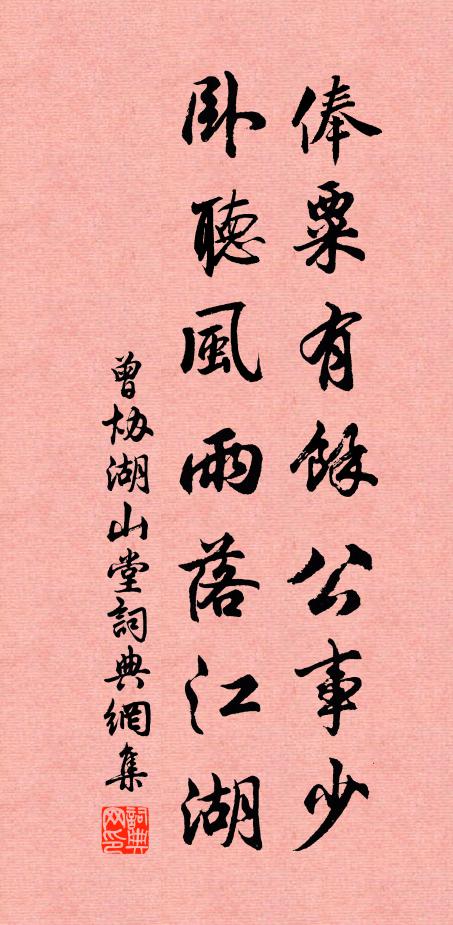 俸粟有餘公事少
卧聽風雨落江湖
曾協湖山堂詞典網集
詞典网印